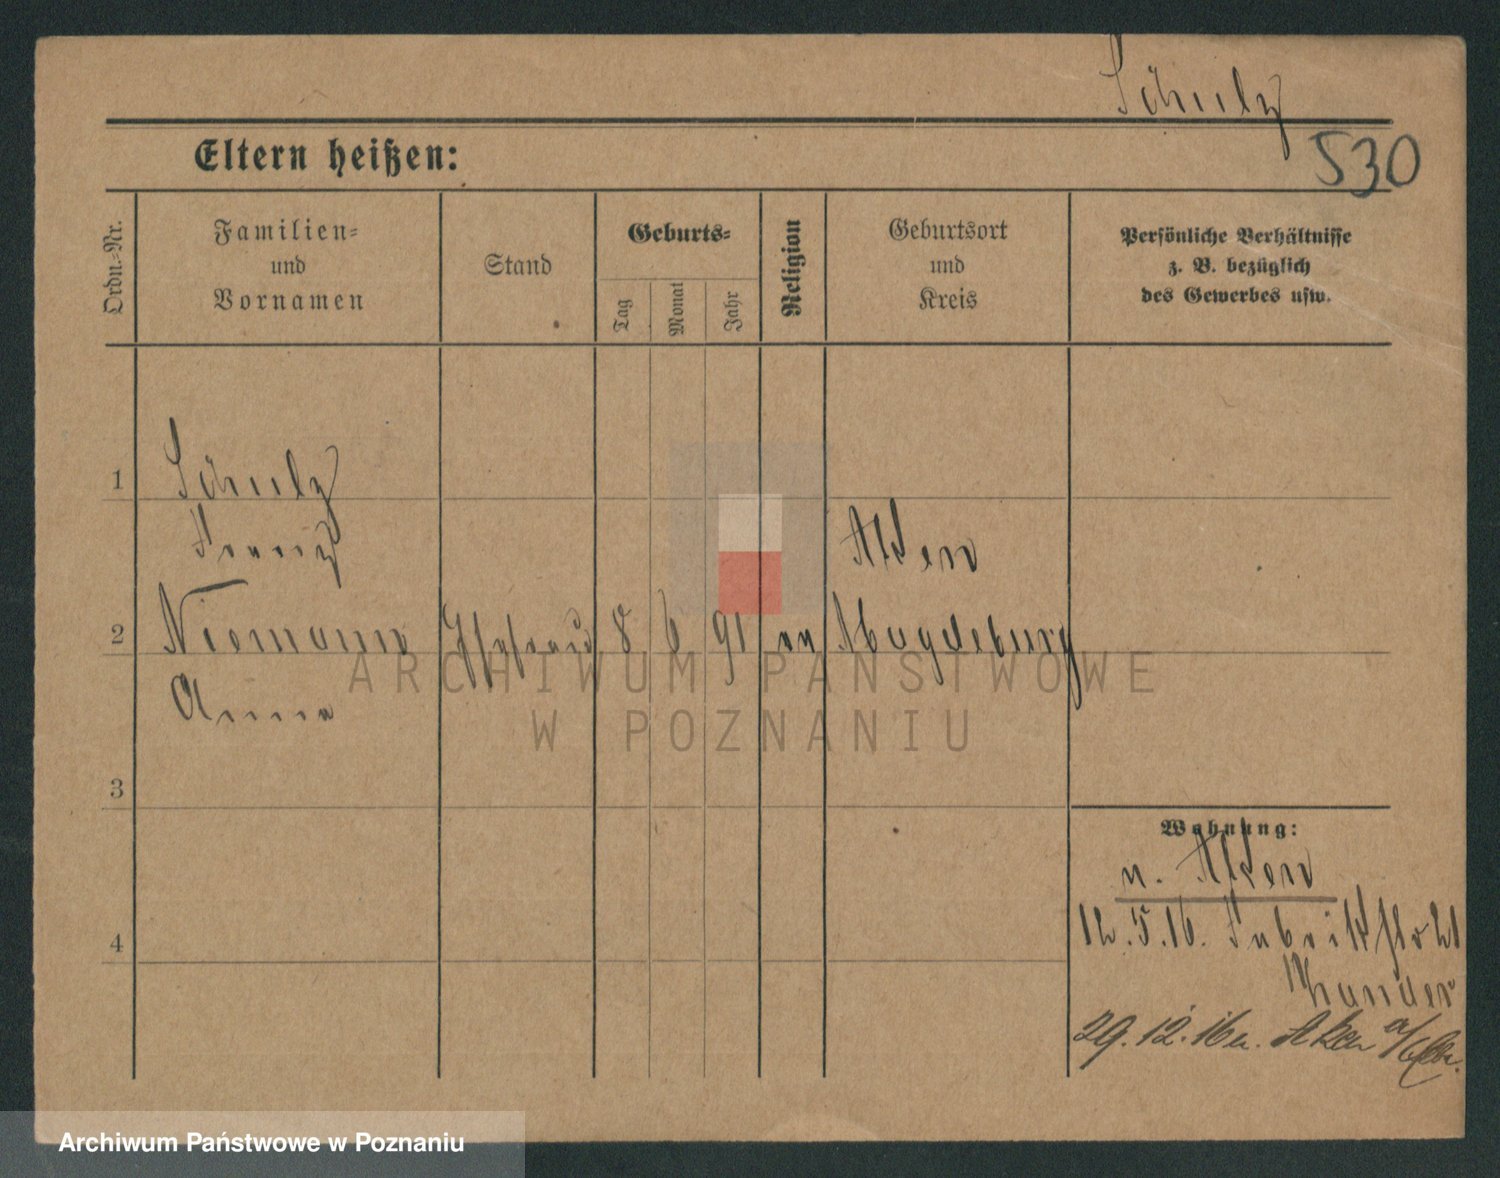 Schulz
530
Eltern heißen:
Ordn.-Nr.
Familien-
und
Vornamen
Stand
Geburts-
Tag
Monat
Jahr
Religion
Geburtsort
und
Kreis
Persönliche Verhältnisse
z. B. bezüglich
des Gewerbes usw.
1
Schulz
Franz
Aken
2
Niemann
8 6 91
Magdeburg
Anna
ARCHIWUM PAŃSTWOWE
W POZNANIU
3
Wohnung:
n. Aken
4
12.5.16. Fabrikstr 21
29.12.16 n. Aken a/Elbe.
Archiwum Państwowe w Poznaniu